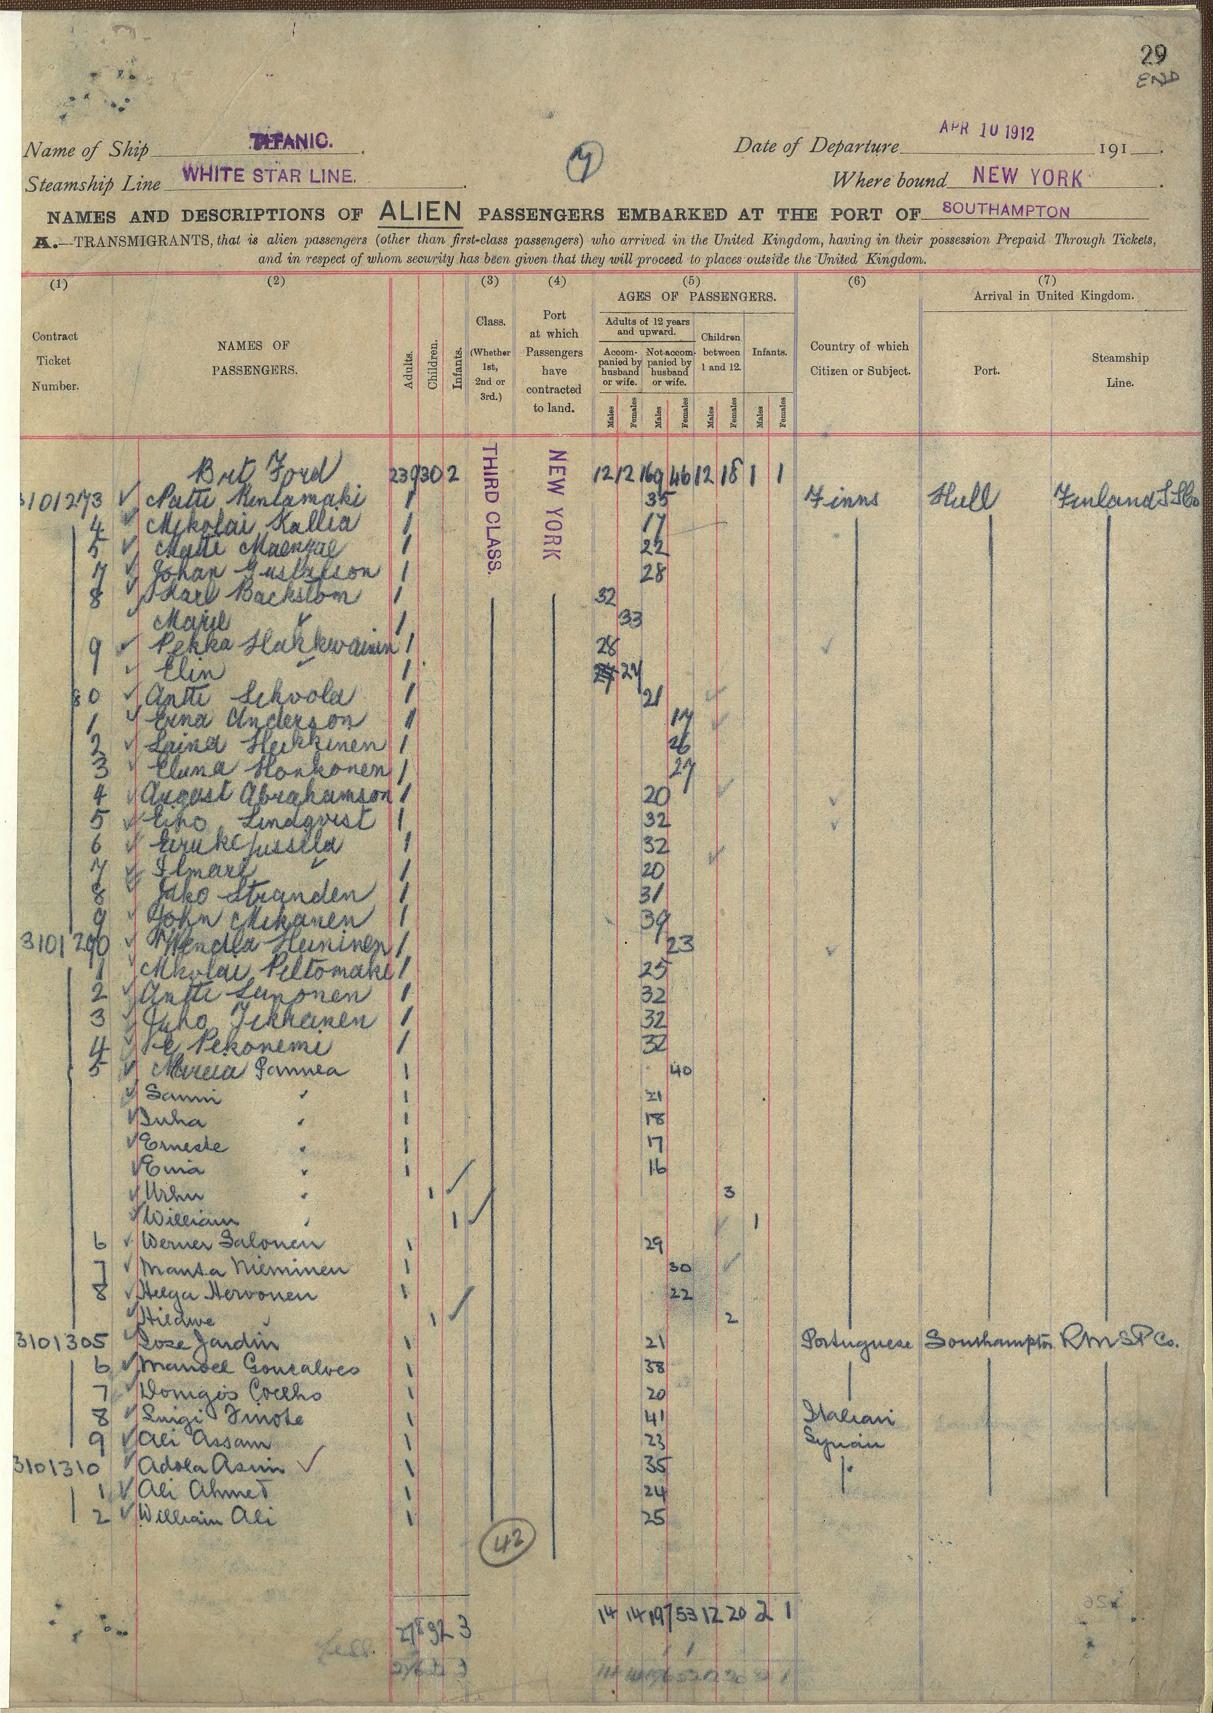 29
END
Name of Ship TITANIC.
Date of Departure APR 10 1912 191
Steamship Line WHITE STAR LINE.
7
Where bound NEW YORK
NAMES AND DESCRIPTIONS OF ALIEN PASSENGERS EMBARKED AT THE PORT OF SOUTHAMPTON
A.—TRANSMIGRANTS, that is alien passengers (other than first-class passengers) who arrived in the United Kingdom, having in their possession Prepaid Through Tickets,
and in respect of whom security has been given that they will proceed to places outside the United Kingdom.
(1) (2) (3) (4) (5) (6) (7)
Contract Ticket Number.
NAMES OF PASSENGERS.
Adults. Children. Infants.
Class. (Whether 1st, 2nd or 3rd.)
Port at which Passengers have contracted to land.
AGES OF PASSENGERS.
Adults of 12 years and upward.
Accompanied by husband or wife.
Not accompanied by husband or wife.
Children between 1 and 12.
Infants.
Males Females Males Females Males Females Males Females
Country of which Citizen or Subject.
Arrival in United Kingdom.
Port.
Steamship Line.
THIRD CLASS.
NEW YORK
Brt Ford 239 30 2 12 12 169 46 12 18 1 1
3101273 Matti Rintamaki 1 35 Finns Hull Finland SS Co
4 Nikolai Kallia 1 17
5 Matti Maenpae 1 22
7 Johan Gustafson 1 28
8 Karl Backstom 1 32
1 33
9 Pekka Hakkurainen 1 28
Elin 1 24
80 Antti 1 21
1 Erna Anderson 1 17
2 Laina Heikkinen 1 26
3 Eluna Honkonen 1 27
4 August Abrahamson 1 20
5 Eino Lindqvist 1 32
6 Eiruk Jussila 1 32
7 Ilmari 1 20
8 Juho Stranden 1 31
9 John 1 39
3101290 Wendla Heininen 1 23
1 Nikolai Peltomaki 1 25
2 Antti 1 32
3 Juho Tikkanen 1 32
4 Pekoniemi 1 32
5 Maria Pannea 1 40
Sanni 1 21
Juha 1 18
Erneste 1 17
Enia 1 16
Urhu 1 3
William 1 1
6 Werner Salonen 1 29
7 Manta Nieminen 1 30
8 Helga Hervonen 1 22
Hildwe 1 2
3101305 Jose Jardin 1 21 Portuguese Southampton RMSP Co.
6 Manoel Goncalves 1 38
7 Domgis Coelho 1 20
8 Luigi Finote 1 41 Italian
9 Ali Assam 1 23 Syrian
3101310 Adola Asim 1 35
1 Ali Ahmet 1 24
2 William Ali 1 25
42
278 32 3 14 14 197 53 12 20 2 1